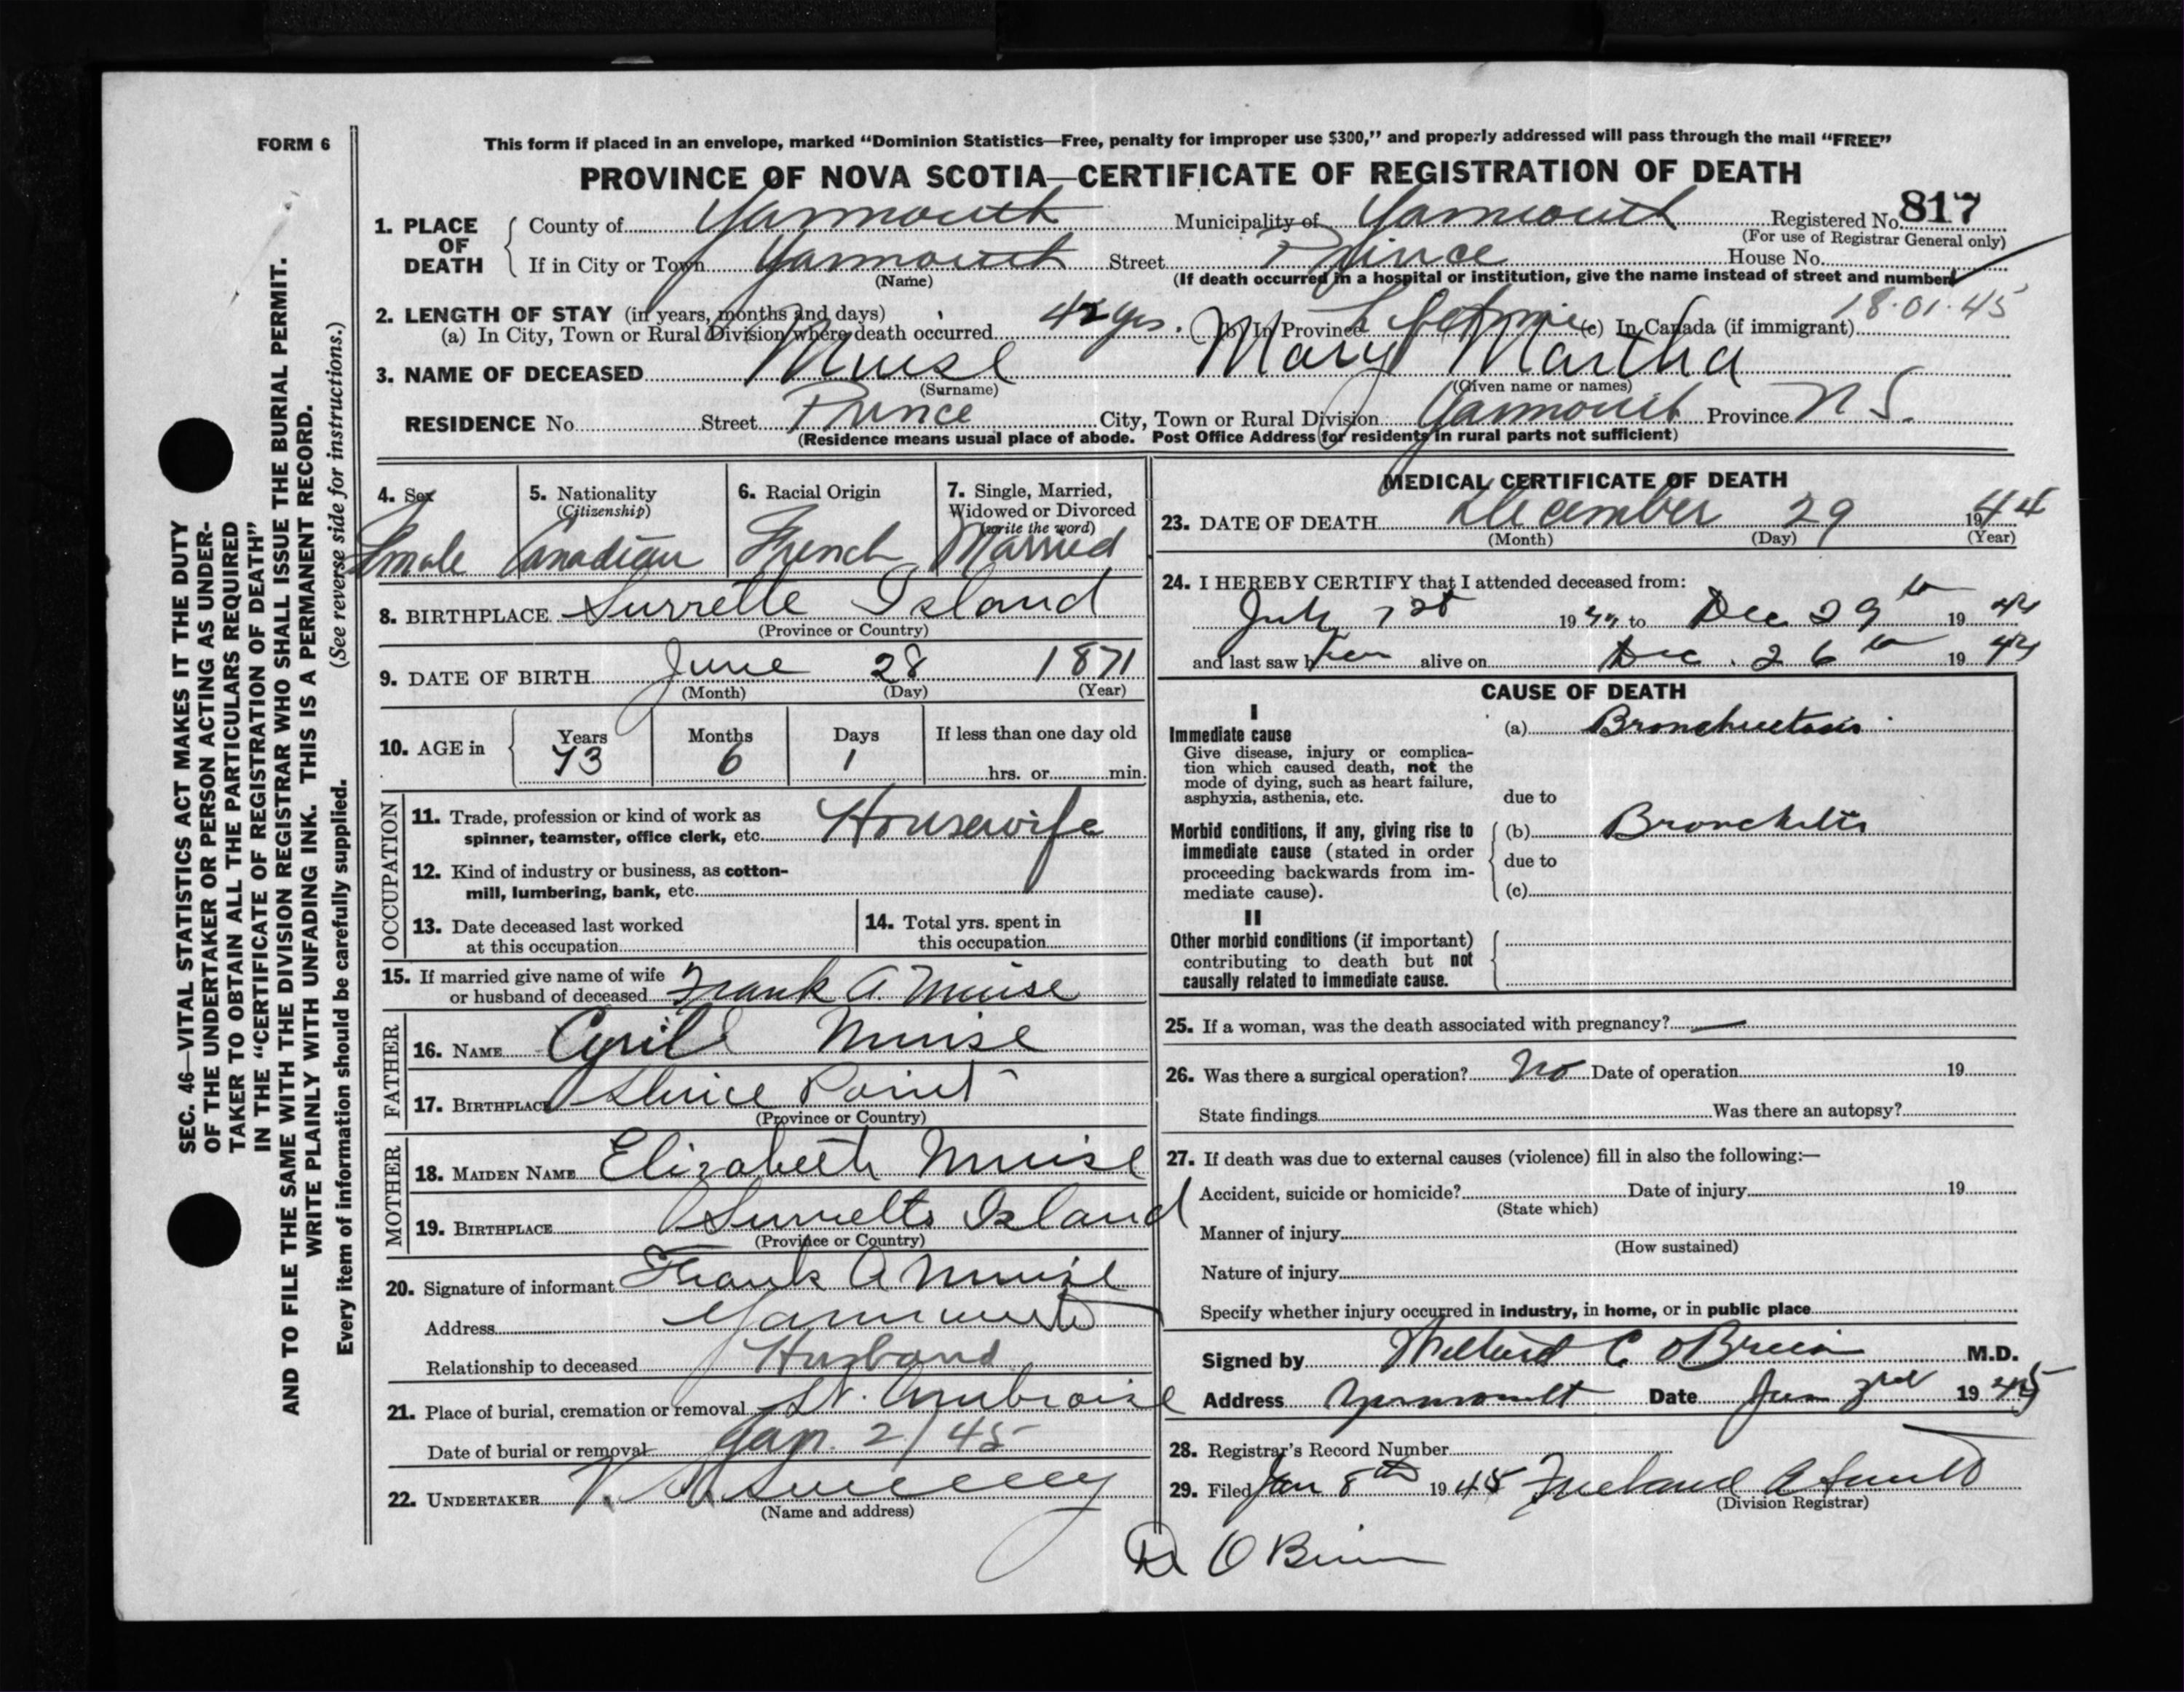 FORM 6
This form if placed in an envelope, marked "Dominion Statistics—Free, penalty for improper use $300," and properly addressed will pass through the mail "FREE"
PROVINCE OF NOVA SCOTIA—CERTIFICATE OF REGISTRATION OF DEATH
1. PLACE OF DEATH { County of Yarmouth Municipality of Yarmouth Registered No. 817
(For use of Registrar General only)
If in City or Town Yarmouth Street Prince House No.
(Name) (If death occurred in a hospital or institution, give the name instead of street and number)
2. LENGTH OF STAY (in years, months and days) 18·01·45
(a) In City, Town or Rural Division where death occurred 42 yrs. (b) In Province Lifetime (c) In Canada (if immigrant)
3. NAME OF DECEASED Muise Mary Martha
(Surname) (Given name or names)
RESIDENCE No. Street Prince City, Town or Rural Division Yarmouth Province N S.
(Residence means usual place of abode. Post Office Address for residents in rural parts not sufficient)
4. Sex 5. Nationality 6. Racial Origin 7. Single, Married,
(Citizenship) Widowed or Divorced
(write the word)
Female Canadian French Married
8. BIRTHPLACE Surrette Island
(Province or Country)
9. DATE OF BIRTH June 28 1871
(Month) (Day) (Year)
10. AGE in { Years Months Days If less than one day old
73 6 1 hrs. or min.
OCCUPATION
11. Trade, profession or kind of work as
spinner, teamster, office clerk, etc. Housewife
12. Kind of industry or business, as cotton-
mill, lumbering, bank, etc.
13. Date deceased last worked
at this occupation
14. Total yrs. spent in
this occupation
15. If married give name of wife
or husband of deceased Frank A. Muise
FATHER
16. NAME Cyril Muise
17. BIRTHPLACE Sluice Point
(Province or Country)
MOTHER
18. MAIDEN NAME Elizabeth Muise
19. BIRTHPLACE Surrette Island
(Province or Country)
20. Signature of informant Frank A Muise
Address Yarmouth
Relationship to deceased Husband
21. Place of burial, cremation or removal St. Ambroise
Date of burial or removal Jan. 2/45
22. UNDERTAKER V. Sweeney
(Name and address)
MEDICAL CERTIFICATE OF DEATH
23. DATE OF DEATH December 29 1944
(Month) (Day) (Year)
24. I HEREBY CERTIFY that I attended deceased from:
July 1st 1944 to Dec 29th 1944
and last saw her alive on Dec. 26th 1944
CAUSE OF DEATH
I
Immediate cause (a) Bronchiectasis
Give disease, injury or complica-
tion which caused death, not the
mode of dying, such as heart failure,
asphyxia, asthenia, etc. due to
Morbid conditions, if any, giving rise to (b) Bronchitis
immediate cause (stated in order due to
proceeding backwards from im-
mediate cause). (c)
II
Other morbid conditions (if important)
contributing to death but not
causally related to immediate cause.
25. If a woman, was the death associated with pregnancy? —
26. Was there a surgical operation? No Date of operation 19
State findings Was there an autopsy?
27. If death was due to external causes (violence) fill in also the following:—
Accident, suicide or homicide? Date of injury 19
(State which)
Manner of injury
(How sustained)
Nature of injury
Specify whether injury occurred in industry, in home, or in public place
Signed by C. O'Brien M.D.
Address Yarmouth Date Jan 3rd 1945
28. Registrar's Record Number
29. Filed Jan 8th 1945 A Smith
(Division Registrar)
Dr O'Brien
SEC. 46—VITAL STATISTICS ACT MAKES IT THE DUTY
OF THE UNDERTAKER OR PERSON ACTING AS UNDER-
TAKER TO OBTAIN ALL THE PARTICULARS REQUIRED
IN THE "CERTIFICATE OF REGISTRATION OF DEATH"
AND TO FILE THE SAME WITH THE DIVISION REGISTRAR WHO SHALL ISSUE THE BURIAL PERMIT.
WRITE PLAINLY WITH UNFADING INK. THIS IS A PERMANENT RECORD.
(See reverse side for instructions.)
Every item of information should be carefully supplied.